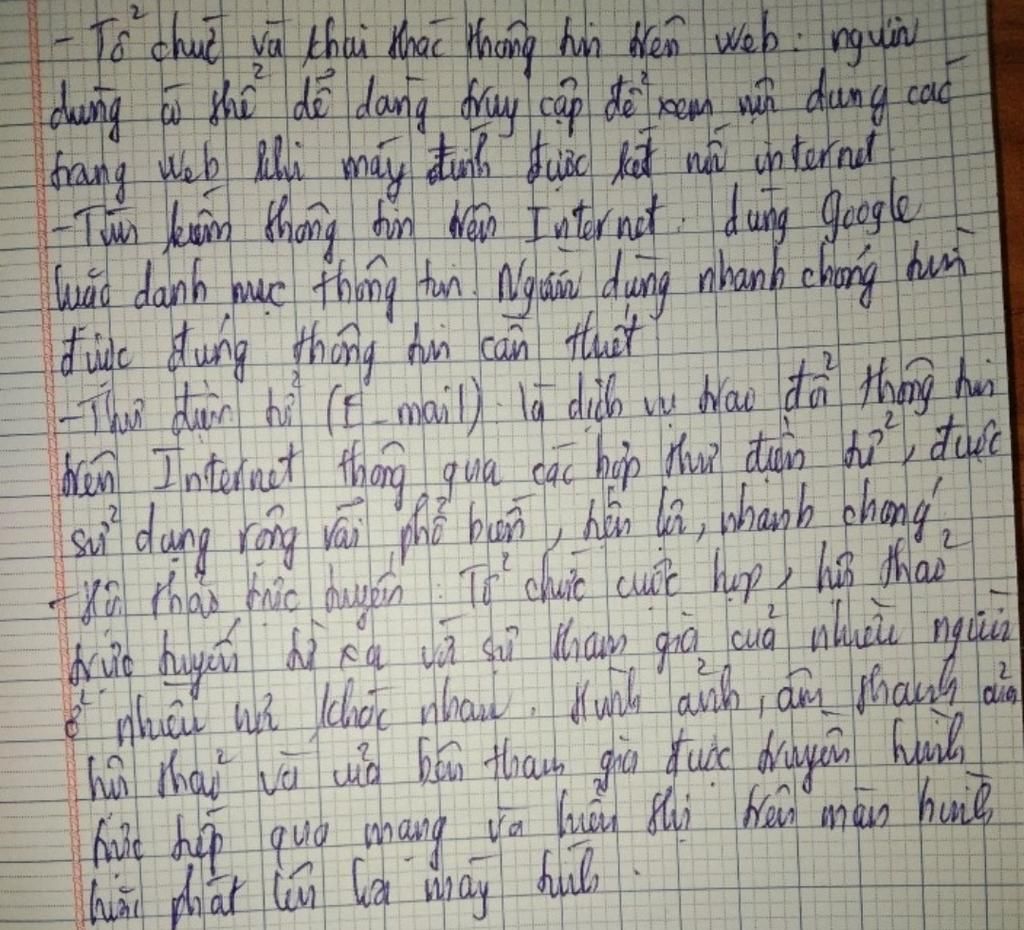 - Tổ chức và khai thác thông tin trên web: người
dùng có thể dễ dàng truy cập để xem nội dung các
trang web khi máy tính được kết nối internet
- Tìm kiếm thông tin trên Internet: dùng Google
hoặc danh mục thông tin. Người dùng nhanh chóng tìm
được đúng thông tin cần thiết
- Thư điện tử (E-mail): là dịch vụ trao đổi thông tin
trên Internet thông qua các hộp thư điện tử, được
sử dụng rộng rãi phổ biến, tiện lợi, nhanh chóng
- Hội thảo trực tuyến: Tổ chức cuộc họp, hội thảo
trực tuyến từ xa với sự tham gia của nhiều người
ở nhiều nơi khác nhau. Hình ảnh, âm thanh của
hội thảo và của bên tham gia được truyền hình
trực tiếp qua mạng và hiển thị trên màn hình
hoặc phát lên loa máy tính.